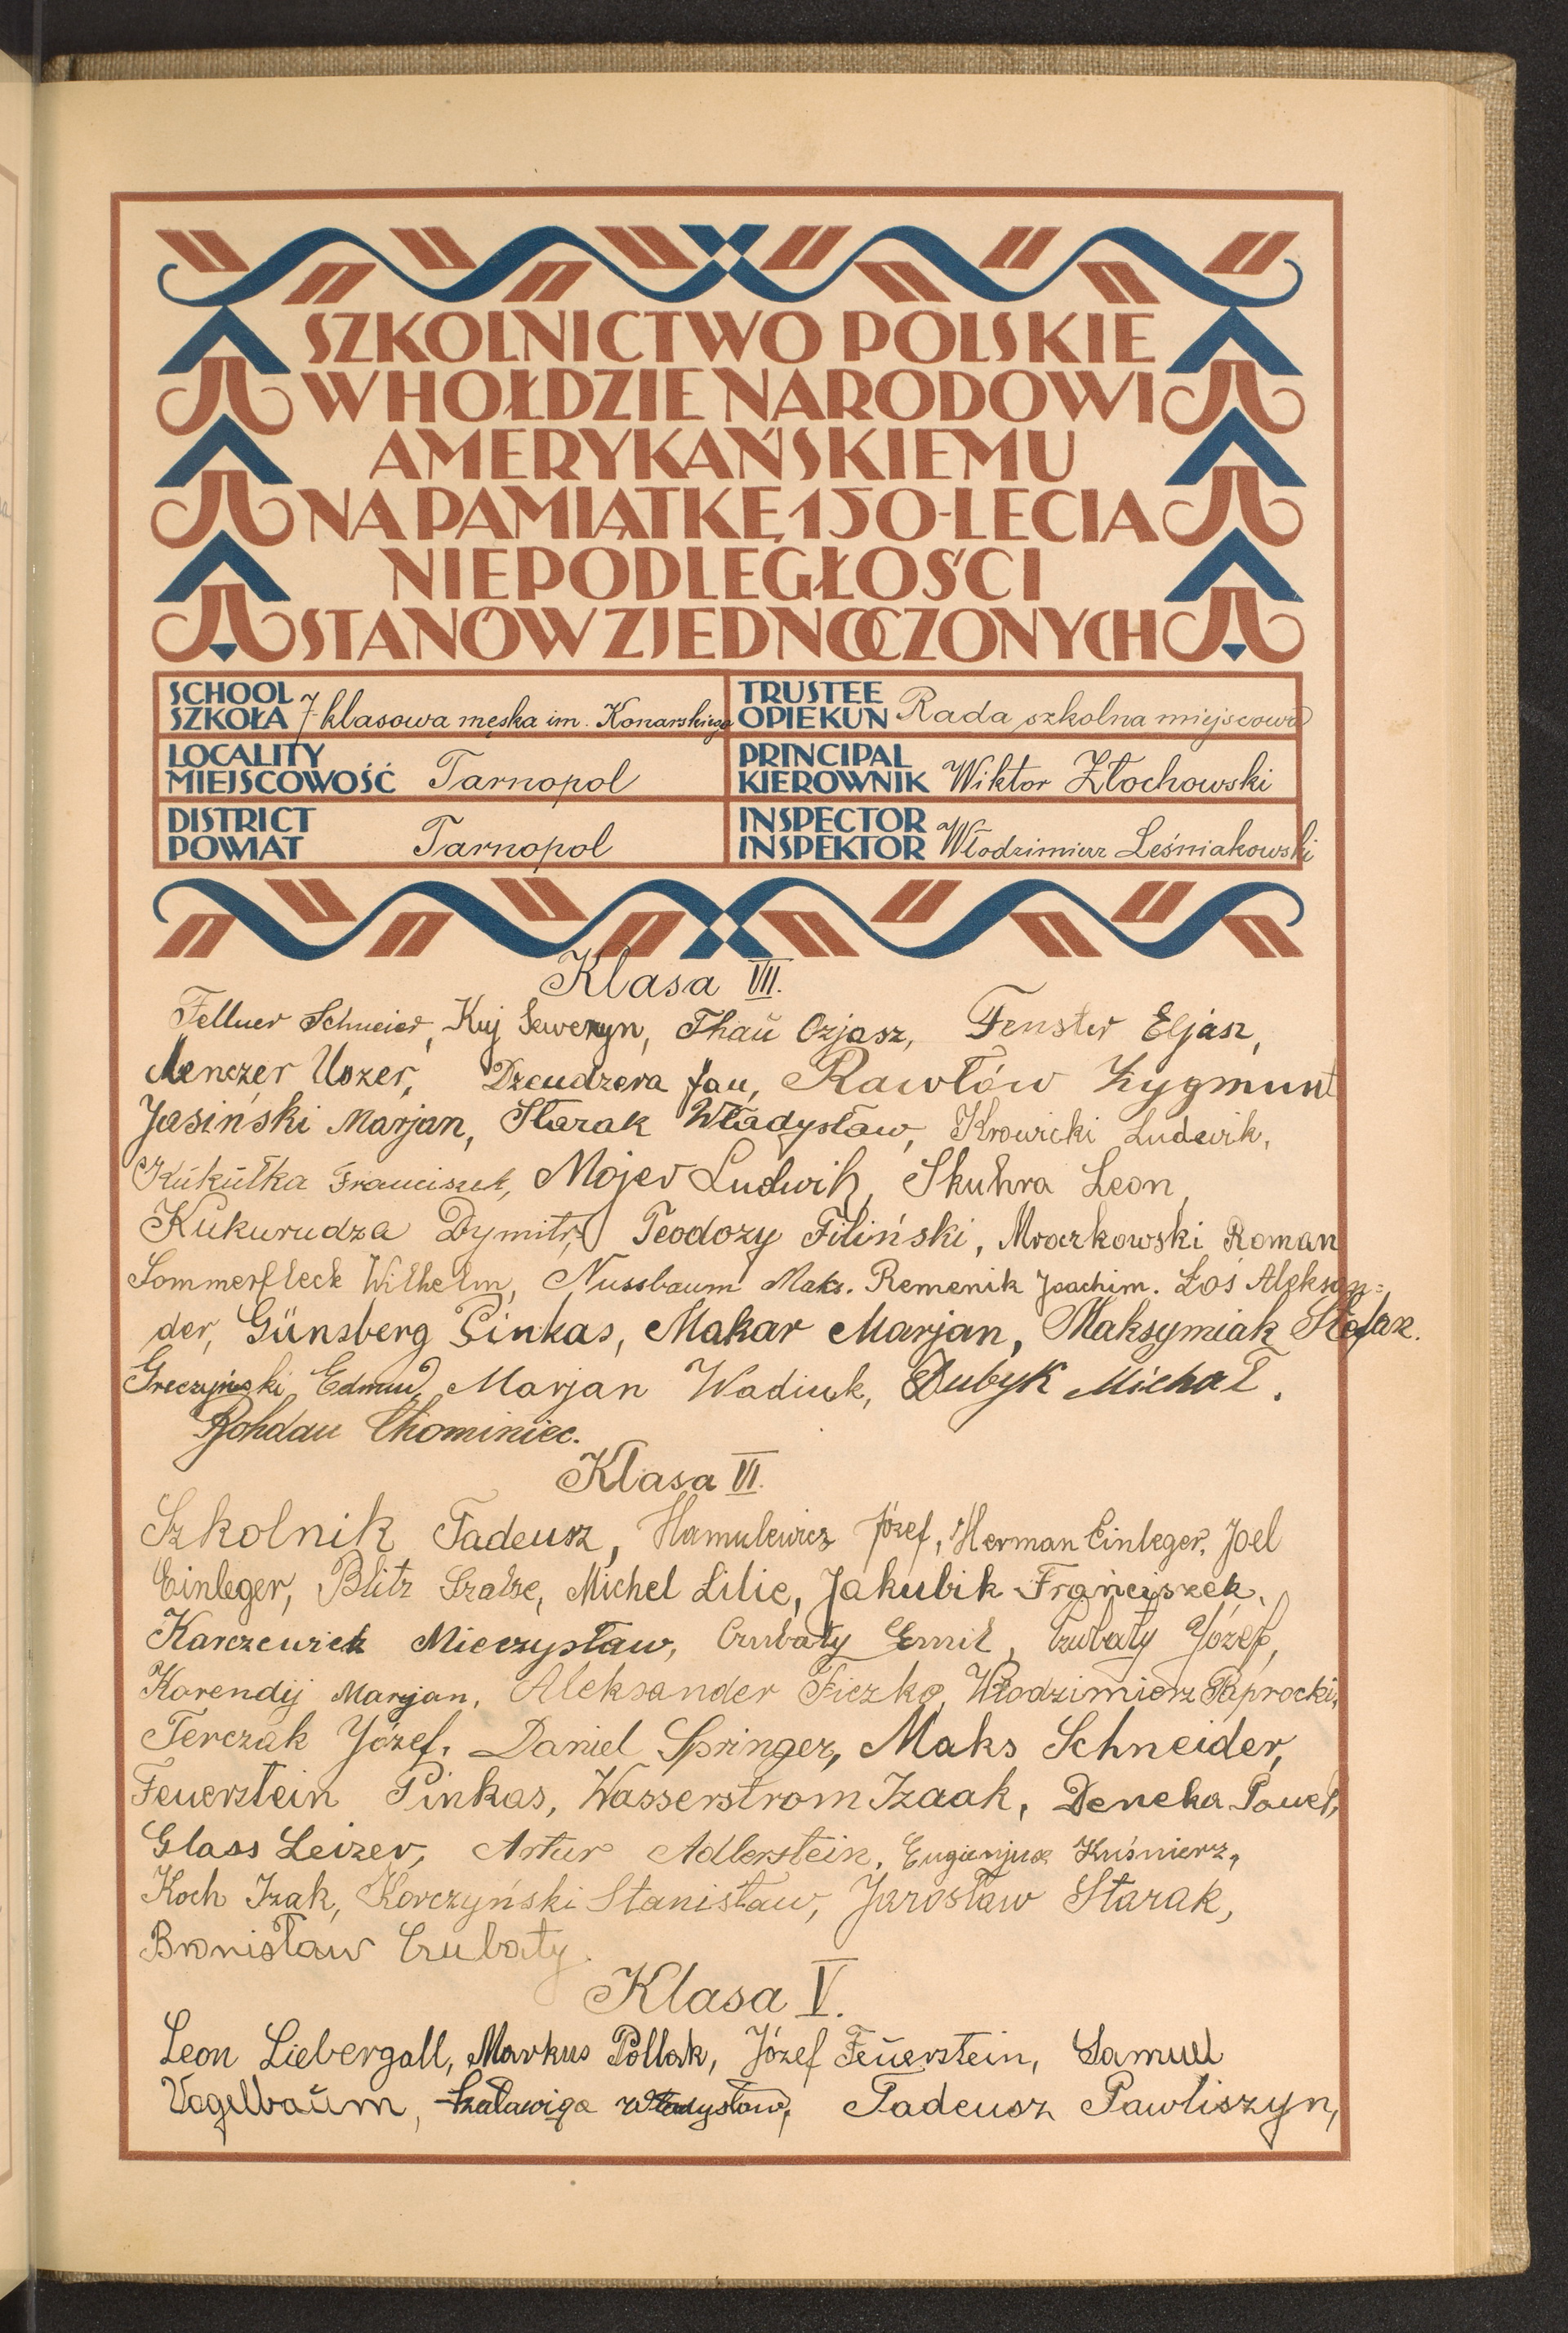 SZKOLNICTWO POLSKIE
W HOŁDZIE NARODOWI
AMERYKAŃSKIEMU
NA PAMIĄTKĘ 150-LECIA
NIEPODLEGŁOŚCI
STANÓW ZJEDNOCZONYCH
SCHOOL
SZKOŁA 7-klasowa męska im. Konarskiego
TRUSTEE
OPIEKUN Rada szkolna miejscowa
LOCALITY
MIEJSCOWOŚĆ Tarnopol
PRINCIPAL
KIEROWNIK Wiktor Złochowski
DISTRICT
POWIAT Tarnopol
INSPECTOR
INSPEKTOR Włodzimierz Leśniakowski
Klasa VII.
Fellner Schneier, Kuj Seweryn, Thaŭ Ozjasz, Fenster Eljasz,
Menczer Uszer, Dzeudzera Jan, Rawłów Zygmunt
Jasiński Marjan, Starak Władysław, Krowicki Ludwik,
Kukułka Franciszek, Mojer Ludwik, Skuhra Leon,
Kukurudza Dymitr, Teodozy Filiński, Mroczkowski Roman
Sommerfleck Wilhelm, Nussbaum Maks. Remenik Joachim. Łoś Aleksan=
der, Günsberg Pinkas, Makar Marjan, Maksymiak Stefan.
Greczyński Edmund, Marjan Wadiuk, Dubyk Michał.
Bohdan Chominiec.
Klasa VI.
Szkolnik Tadeusz, Hamulewicz Józef, Herman Einleger, Joel
Einleger, Blitz Michel Lilie, Jakubik Franciszek,
Karczewicz Mieczysław, Czubaty Emil, Czubaty Józef,
Korendij Marjan, Aleksander Ficzko, Włodzimierz Paprocki,
Terczak Józef, Daniel Springer, Maks Schneider,
Feuerstein Pinkas, Wasserstrom Izaak, Deneka Paweł,
Glass Leizer, Artur Adlerstein, Eugienjusz Kuśnierz,
Koch Izak, Korczyński Stanisław, Jarosław Starak,
Bronisław Czubaty.
Klasa V.
Leon Liebergall, Markus Pollak, Józef Feŭerstein, Samuel
Vogelbaŭm, Władysław, Tadeusz Pawliszyn,